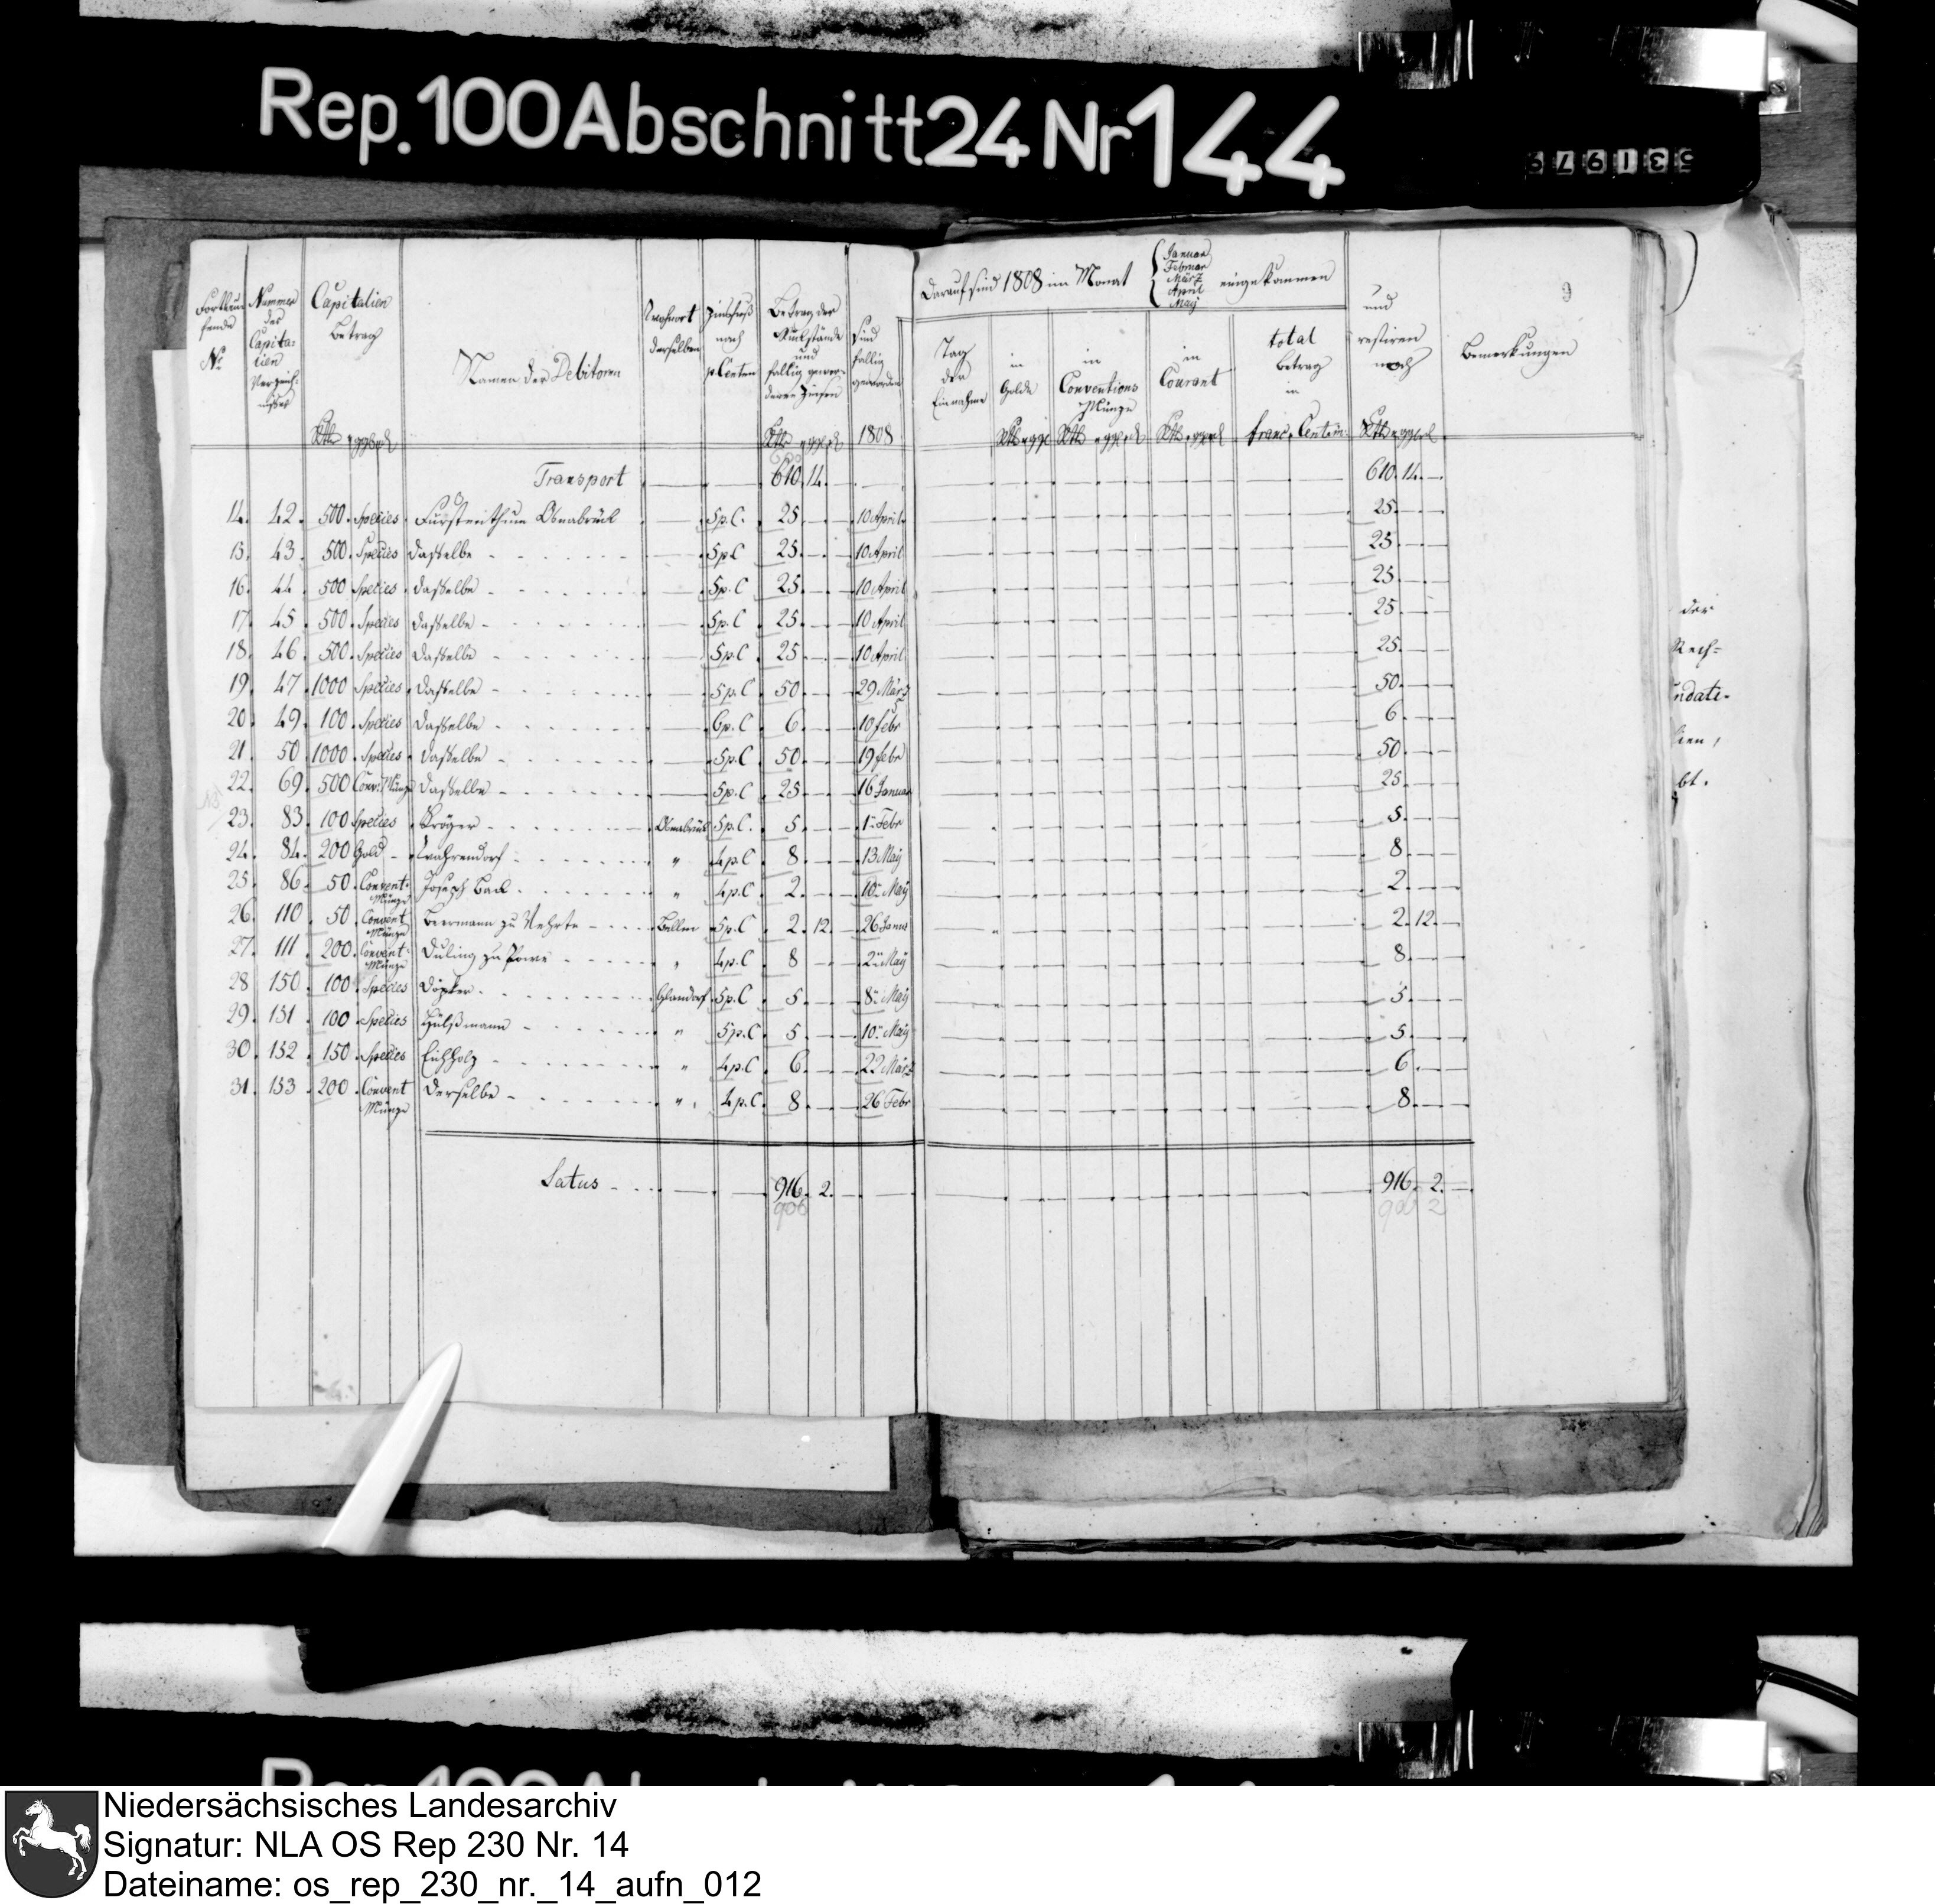 Rep. 100 Abschnitt 24 Nr 144
5319 79
Fortlaufende Nr.
Nummer des Capitalien Verzeichnißes
Capitalien Betrag
Namen der Debitoren
Wohnort derselben
Zinsfuß nach p. Centen
Betrag der Rückstände und fällig gewordenen Zinsen
Sind fällig geworden 1808
Darauf sind 1808 im Monat Januar Februar März April May eingekommen
Tag der Einnahme
in Golde
in Conventions Münze
in Courant
total betrag in franc. Centim:
und restiren noch
Bemerkungen
9
Transport 610. 14. 610. 14.
14. 42. 500. Species Fürstenthum Osnabrück 5 p.C. 25 10 April 25
15. 43. 500. Species dasselbe 5 p.C 25. 10 April 25
16. 44 500 Species dasselbe 5 p.C 25. 10 April 25
17. 45. 500. Species dasselbe 5 p.C 25. 10 April 25
18. 46. 500. Species dasselbe 5 p.C 25 10 April 25
19. 47. 1000 Species dasselbe 5 p.C 50. 29 März 50.
20. 49. 100. Species dasselbe 6 p.C 6. 10 febr 6.
21. 50 1000. Species dasselbe 5 p.C 50. 19 febr 50.
22. 69. 500 Conv: Münze dasselbe 5 p.C 25 16 Januar 25.
23. 83. 100 Species Kröger Osnabrück 5 p.C. 5. 1n Febr 5.
24. 84. 200 Gold Wahrendorf " 4 p.C 8. 13 May 8.
25. 86. 50. Convent. Münze Joseph Back " 4 p.C 2. 10n May 2.
26. 110. 50. Convent Münze Beermann zu Vehrte Bellm 5 p.C 2. 12. 26 Janua 2. 12.
27. 111. 200. Convent Münze Duling zu Powe " 4 p.C 8 2n May 8.
28 150. 100. Species Döpker Glandorf 5 p.C 5. 8n May 5.
29. 151. 100. Species Hülsmann " 5 p.C 5 10n May 5.
30. 152. 150. Species Eichholz " 4 p.C 6. 22 März 6.
31. 153. 200. Convent Münze Derselbe " 4 p.C. 8. 26 Febr 8.
Latus 916. 2. 916. 2.
906
der
ndati-
bt.
Niedersächsisches Landesarchiv
Signatur: NLA OS Rep 230 Nr. 14
Dateiname: os_rep_230_nr._14_aufn_012